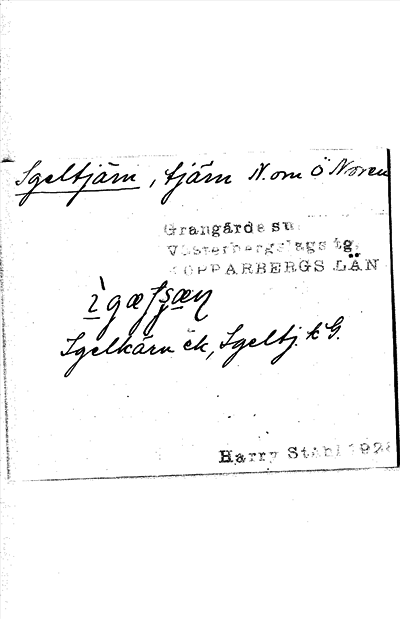 Igeltjärn, tjärn N. om Ö Noren
Grangärde sn
Västerbergslags tg.
KOPPARBERGS LÄN
Igelkärn ek, Igeltj. k G.
Harry Ståhl 1928